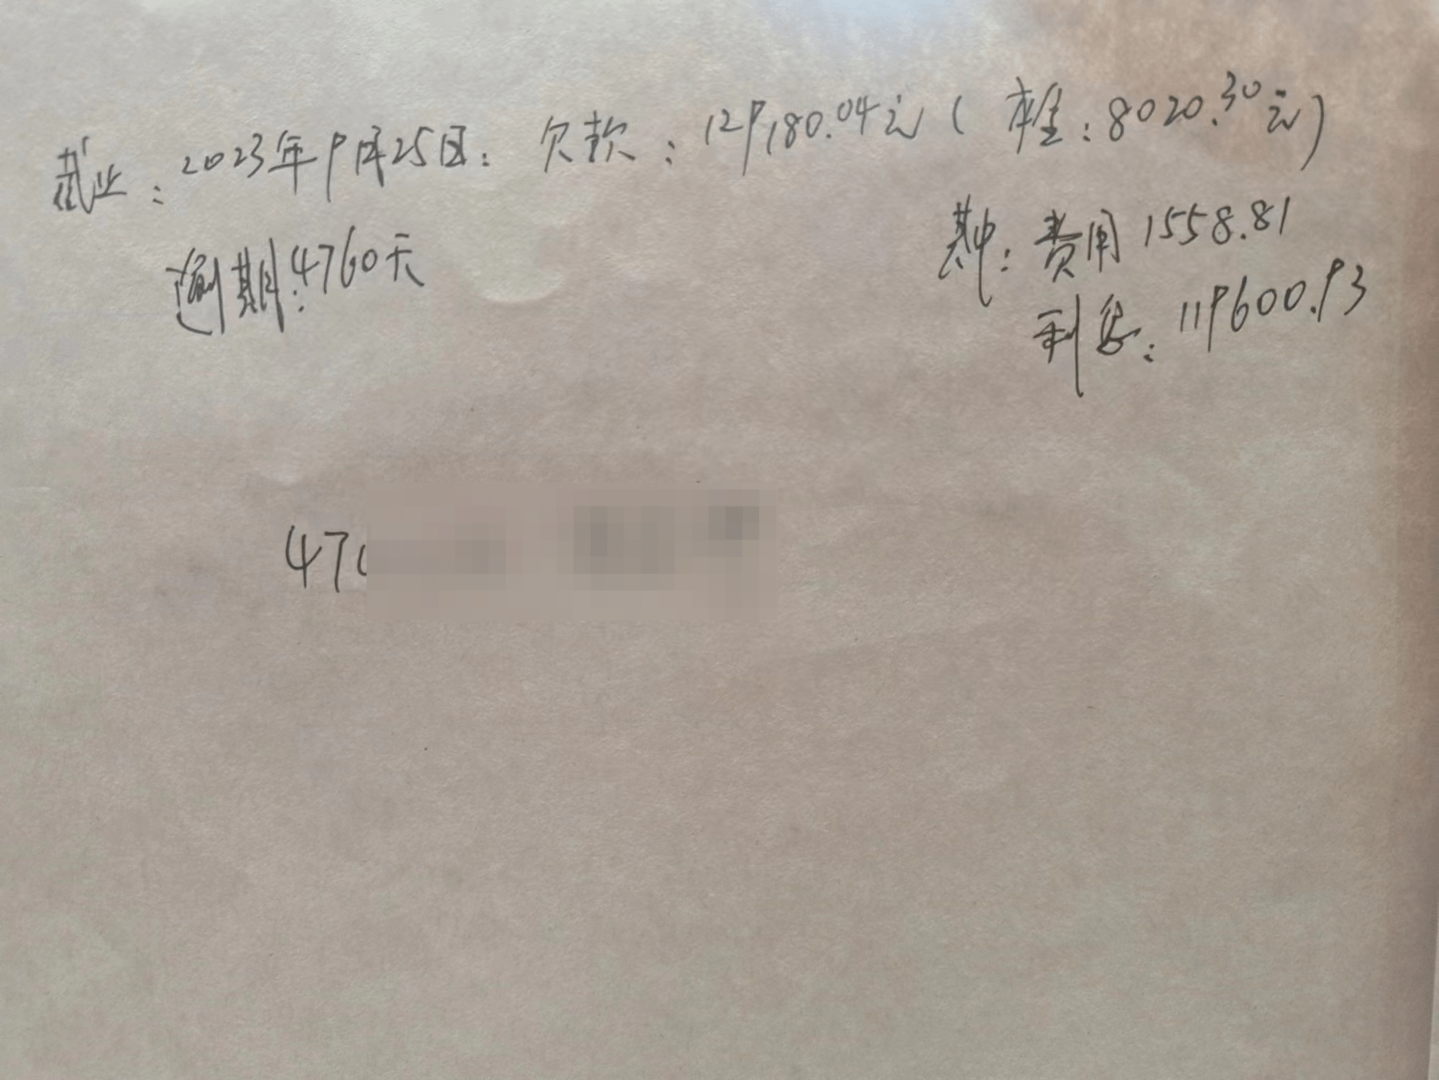 截止：2023年9月25日：欠款：129,180.04元（本金：8020.30元）
逾期：4760天
其中：费用1558.81
利息：119600.93
47